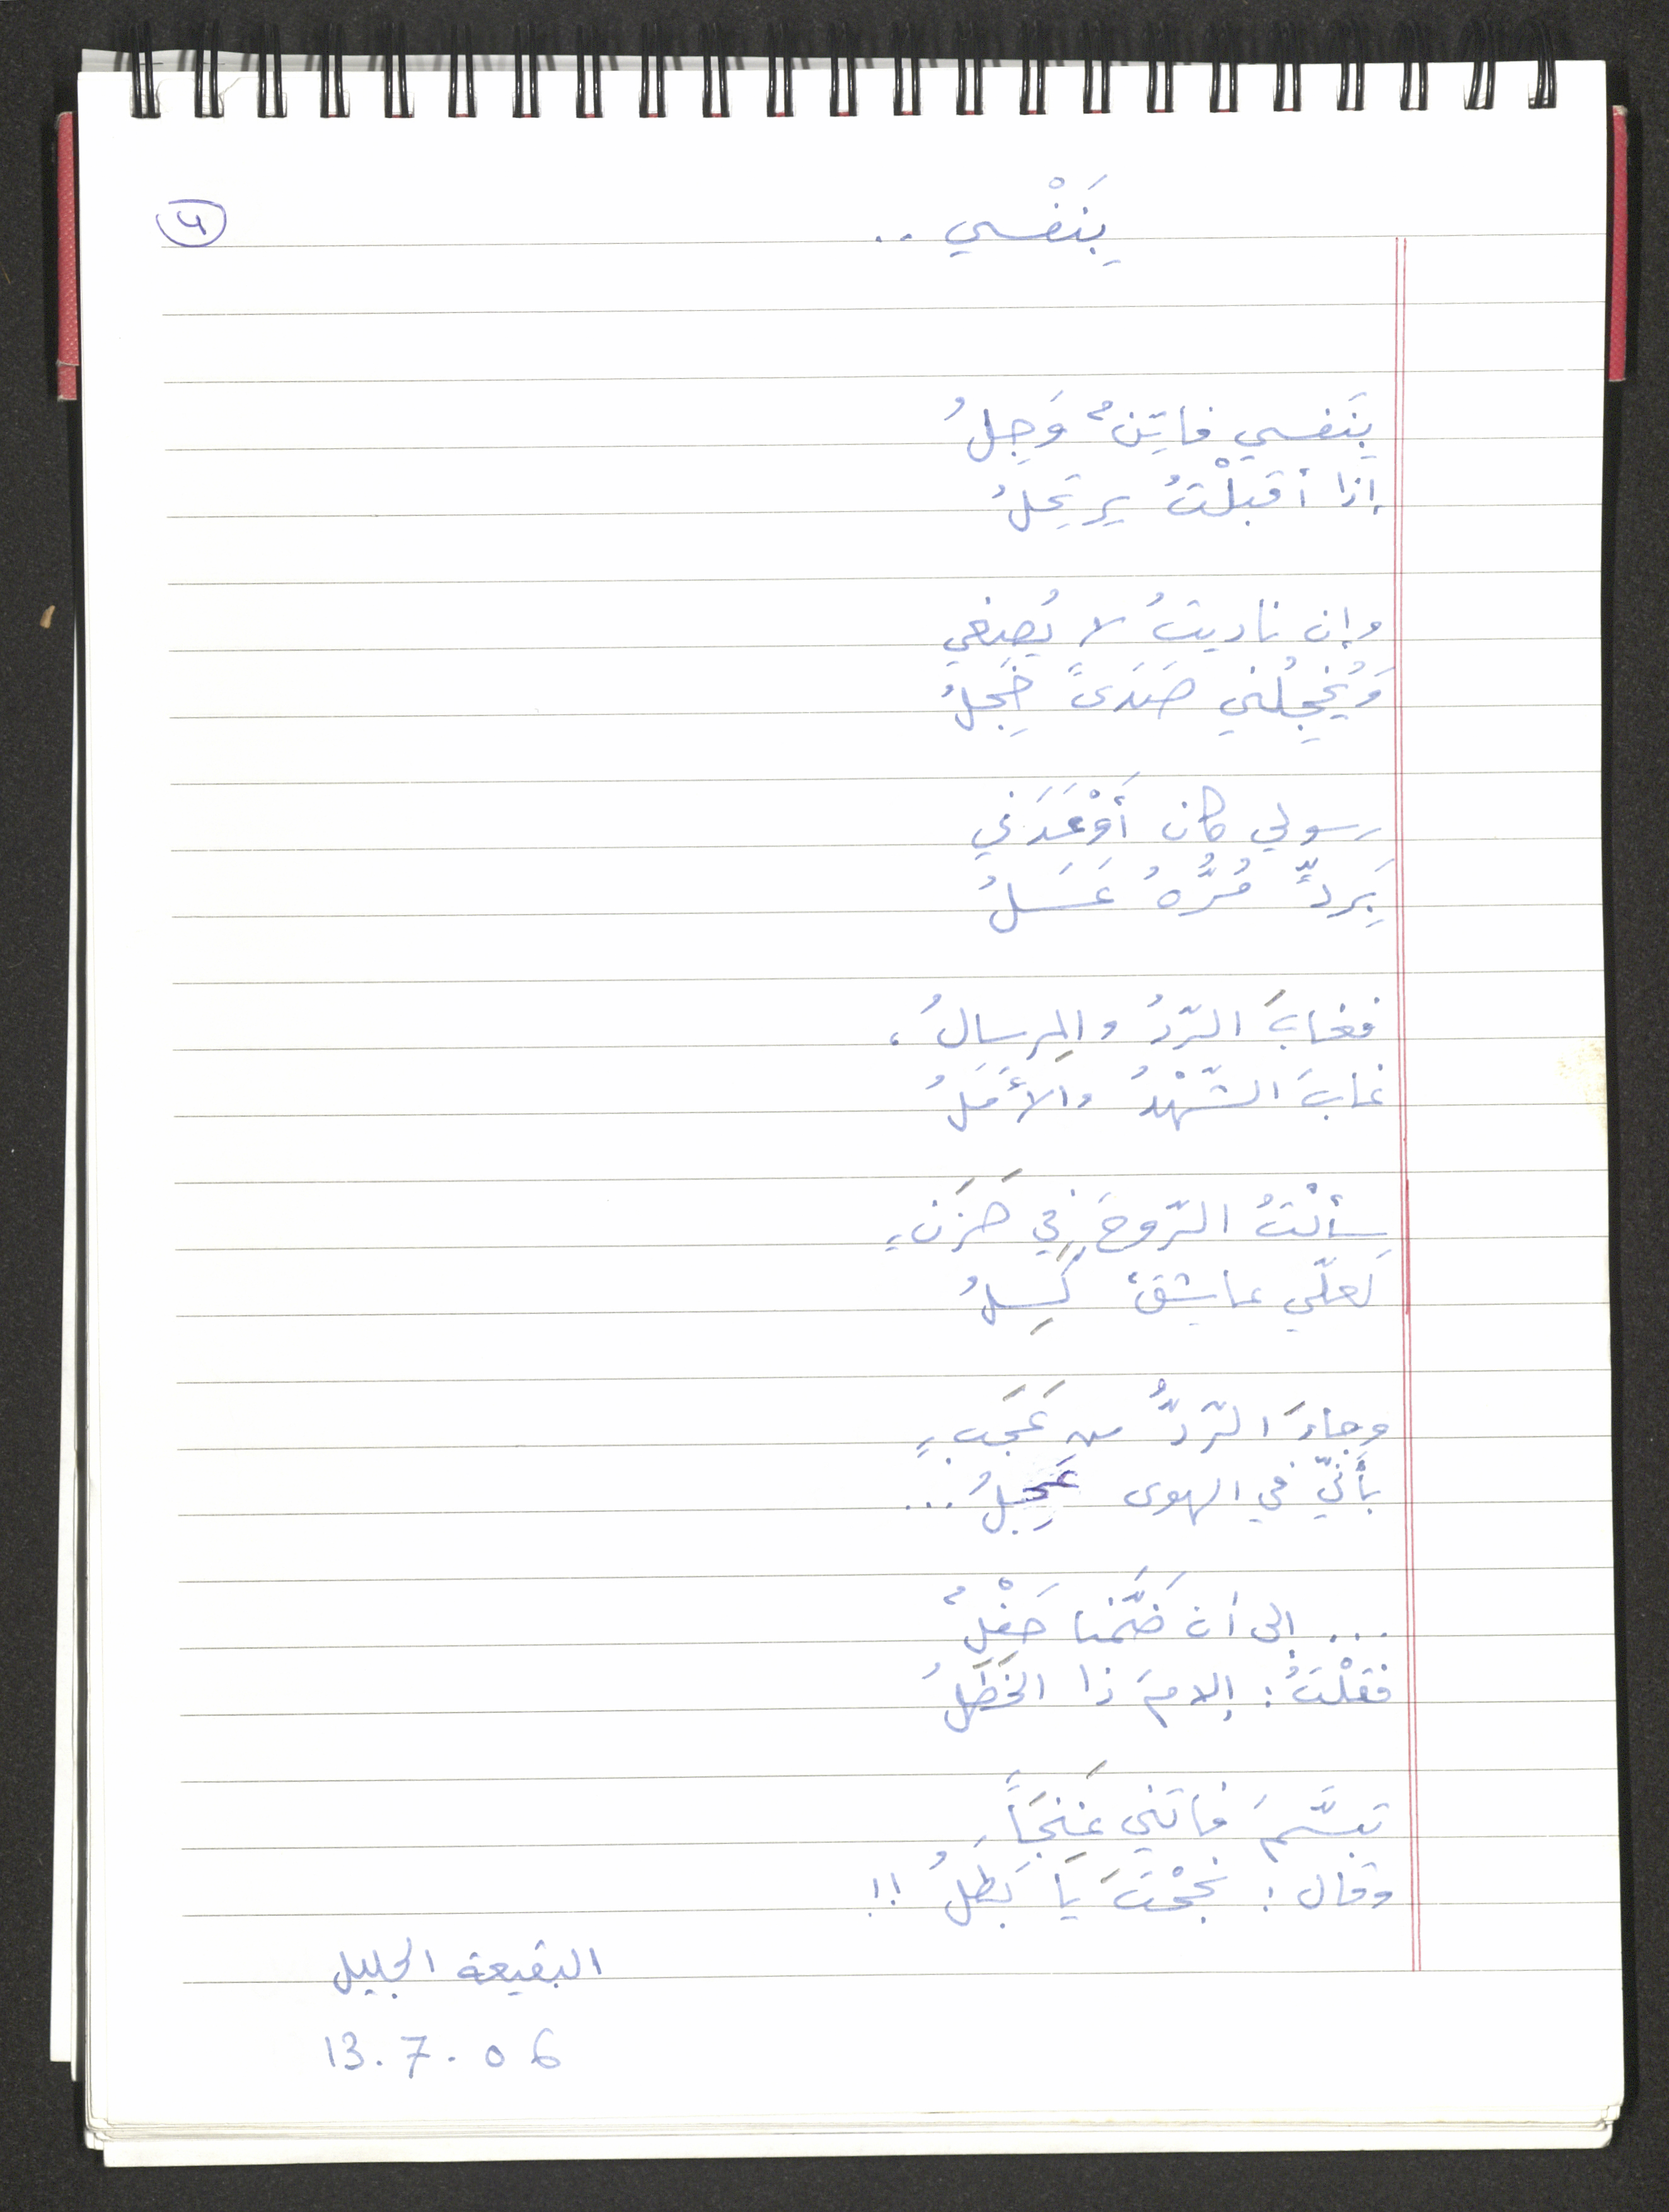 بِنَفْسي ..
4
بِنَفسي فاتِنٌ وَجِلُ
إذا أقبلْتُ يرتحِلُ
وإن ناديتُ لا يُصغي
وَيُخجِلُني صَدَىً خَجِلُ
رسولي كان أَوْعَدَني
بِرَدٍّ مُرُّهُ عَسَلُ
فغابَ الرّدُ والمِرسالُ،
غابَ الشّهْدُ والأَمَلُ
سألْتُ الرّوحَ في حَزَنٍ
لعلّي عاشِقٌ كَسِلُ
وجاءَ الرّدُّ من عَجَبٍ
بأنّي في الهوى عَجِلُ...
... إلى أن ضَمَّنا حَفْلٌ
فقلْتُ: إلامَ ذا الخَطَلُ
تبسَّمَ فاتني غَنِجَاً
وقال: نجحْتَ يَا بَطَلُ!!
البقيعة الجليل
13.7.06